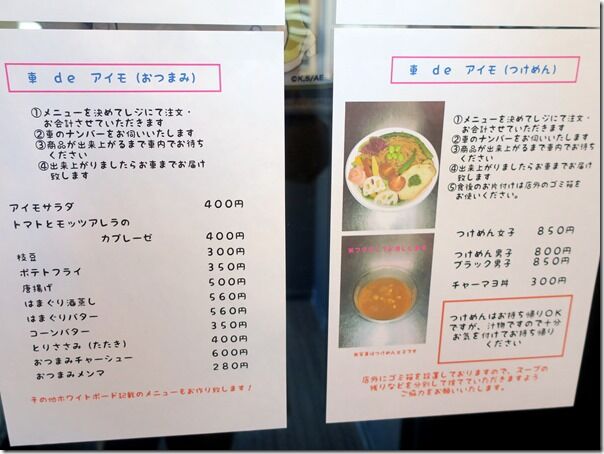 ©K,S/AE
車 de アイモ (おつまみ)
①メニューを決めてレジにて注文・
お会計させていただきます
②車のナンバーをお伺いいたします
③商品が出来上がるまで車内でお待ち
ください
④出来上がりましたらお車までお届け
致します
アイモサラダ 400円
トマトとモッツアレラの
カプレーゼ 400円
枝豆 300円
ポテトフライ 350円
唐揚げ 500円
はまぐり酒蒸し 560円
はまぐりバター 560円
コーンバター 350円
とりささみ (たたき) 400円
おつまみチャーシュー 600円
おつまみメンマ 280円
その他ホワイトボード記載のメニューもお作り致します！
車 de アイモ (つけめん)
①メニューを決めてレジにて注文・
お会計させていただきます
②車のナンバーをお伺いいたします
③商品が出来上がるまで車内でお待ち
ください
④出来上がりましたらお車までお届け
致します
⑤食後のお片付けは店外のゴミ箱を
お使いください。
つけめん女子 850円
つけめん男子 800円
ブラック男子 850円
チャーマヨ丼 300円
つけめんはお持ち帰りOK
ですが、汁物ですので十分
お気を付けてお持ち帰り
ください
店外にゴミ箱を設置しておりますので、スープの
残りなどを分別して捨てていただきますよう
ご協力をお願いいたします。